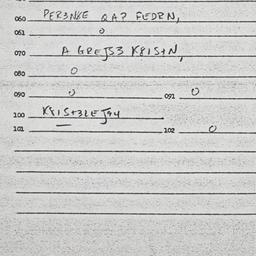 060 PER3NKE QA? FEDRN,
061 0
070 A GREJS3 K8IS+N,
080 0
090 0 091 0
100 K8IS+3LEJ94
101 102 0